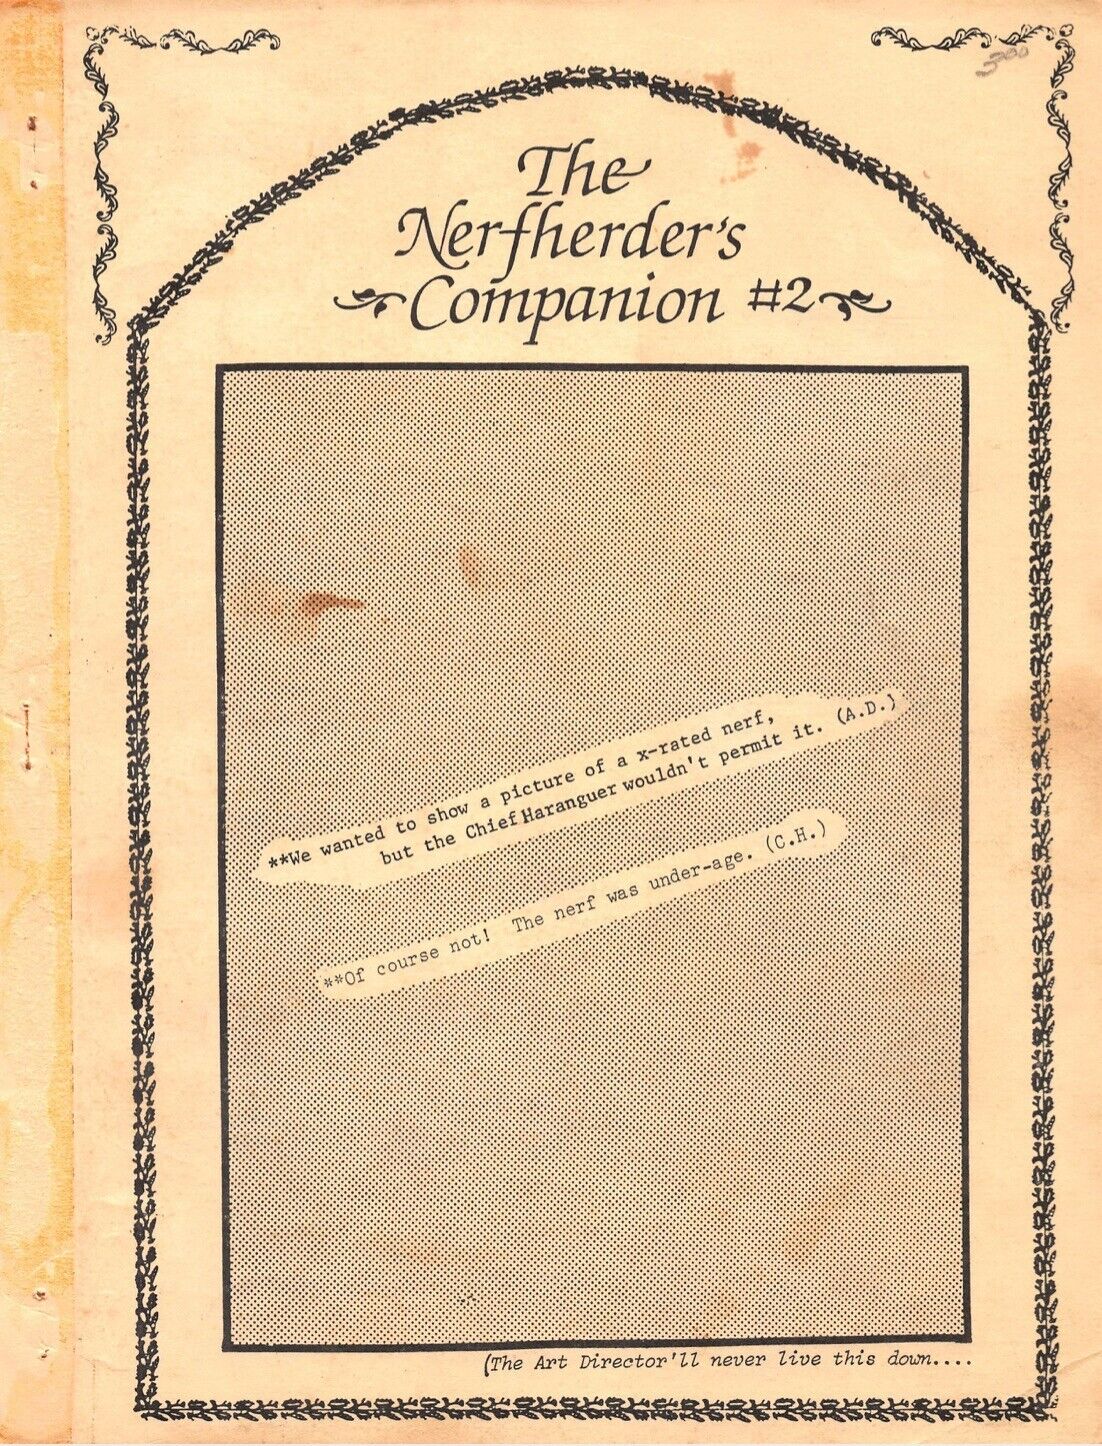 300
The
Nerfherder's
Companion #2
**We wanted to show a picture of a x-rated nerf,
but the Chief Haranguer wouldn't permit it. (A.D.)
**Of course not! The nerf was under-age. (C.H.)
(The Art Director'll never live this down....